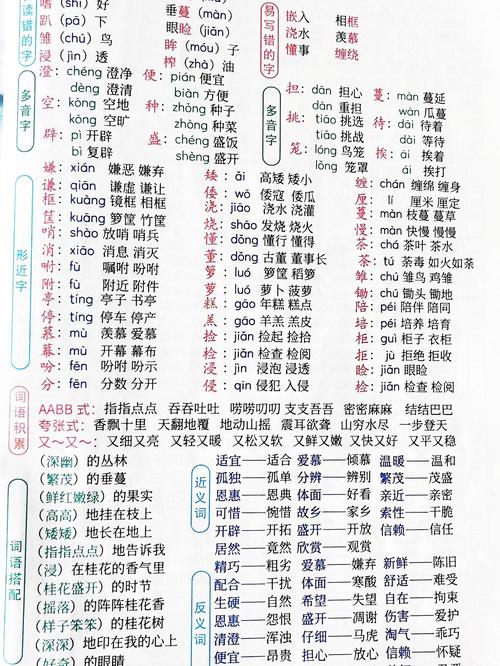 读错的字
嗜(shì)好
趴(pā)下
雏(chú)鸟
浸(jìn)透
垂蔓(màn)
眼睑(jiǎn)
眸(móu)子
榨(zhà)油
易写错的字
嵌入 相框
浇水 羡慕
懂事 缠绕
多音字
澄: chéng 澄净
dèng 澄清
空: kòng 空地
kōng 空旷
辟: pì 开辟
bì 复辟
便: pián 便宜
biàn 方便
种: zhǒng 种子
zhòng 种菜
盛: chéng 盛饭
shèng 盛开
多音字
担: dān 担心
dàn 重担
挑: tiāo 挑选
tiǎo 挑战
笼: lóng 鸟笼
lǒng 笼罩
蔓: màn 蔓延
wàn 瓜蔓
待: dāi 待着
dài 等待
挨: āi 挨着
ái 挨打
形近字
嫌: xián 嫌恶 嫌弃
谦: qiān 谦虚 谦让
框: kuàng 镜框 相框
筐: kuāng 箩筐 竹筐
哨: shào 放哨 哨兵
消: xiāo 消息 消灭
咐: fù 嘱咐 吩咐
附: fù 附近 附件
亭: tíng 亭子 书亭
停: tíng 停车 停产
慕: mù 羡慕 爱慕
幕: mù 开幕 幕布
吩: fēn 吩咐 吩示
分: fēn 分数 分开
矮: ǎi 高矮 矮小
倭: wō 倭寇 倭瓜
浇: jiāo 浇水 浇灌
烧: shāo 发烧 烧火
懂: dǒng 懂行 懂得
董: dǒng 古董 董事长
箩: luó 箩筐 稻箩
萝: luó 萝卜 菠萝
糕: gāo 年糕 糕点
羔: gāo 羊羔 羔皮
捡: jiǎn 捡起 捡拾
检: jiǎn 检查 检阅
浸: jìn 浸泡 浸透
侵: qīn 侵犯 入侵
缠: chán 缠绵 缠身
厘: lí 厘米 厘定
蔓: màn 枝蔓 蔓草
慢: màn 快慢 慢慢
茶: chá 茶叶 茶水
荼: tú 荼毒 如火如荼
雏: chú 雏鸟 鸡雏
锄: chú 锄头 锄地
陪: péi 陪伴 陪同
培: péi 培养 培育
柜: guì 柜子 衣柜
拒: jù 拒绝 拒收
睑: jiǎn 眼睑
检: jiǎn 检查 检阅
词语积累
AABB 式: 指指点点 吞吞吐吐 唠唠叨叨 支支吾吾 密密麻麻 结结巴巴
夸张式: 香飘十里 天翻地覆 地动山摇 震耳欲聋 山穷水尽 一步登天
又～又～: 又细又亮 又轻又暖 又松又软 又鲜又嫩 又快又好 又平又稳
词语搭配
(深幽)的丛林
(繁茂)的垂蔓
(鲜红嫩绿)的果实
(高高)地挂在枝上
(矮矮)地长在地上
(指指点点)地告诉我
(浸)在桂花的香气里
(桂花盛开)的时节
(摇落)的阵阵桂花香
(样子笨笨)的桂花树
(深深)地印在我的心上
(好奇)的眼睛
近义词
适宜——适合 爱慕——倾慕 温暖——温和
孤独——孤单 分辨——辨别 繁茂——茂盛
恩惠——恩典 体面——好看 亲近——亲密
可惜——惋惜 故乡——家乡 索性——干脆
开辟——开拓 盛开——开放 信赖——信任
居然——竟然 欣赏——观赏
反义词
精巧——粗劣 爱慕——嫌弃 新鲜——陈旧
配合——干扰 体面——寒酸 舒适——难受
生硬——自然 希望——失望 自在——拘束
恩惠——怨恨 盛开——凋谢 伤害——爱护
清澄——浑浊 仔细——马虎 淘气——乖巧
便宜——昂贵 亲近——疏远 信赖——怀疑